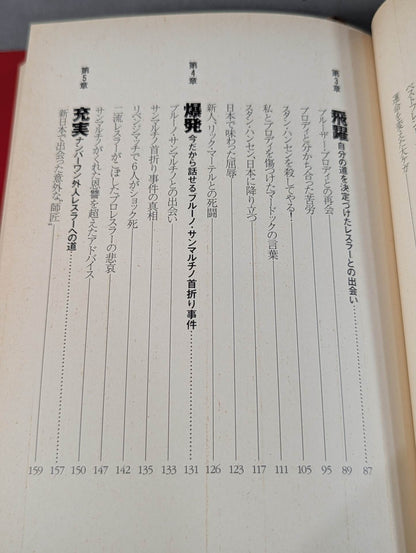 第3章
飛躍 自分の道を決定づけたレスラーとの出会い 87
ブルーザー・ブロディとの再会 89
ブロディと分かち合った苦労 95
スタン・ハンセンを殺してやる! 105
私とブロディを傷つけたマードックの言葉 111
スタン・ハンセン日本に降り立つ 117
日本で味わった屈辱 123
新人、リック・マーテルとの死闘 126
第4章
爆発 今だから話せるブルーノ・サンマルチノ首折り事件 131
ブルーノ・サンマルチノとの出会い 133
サンマルチノ首折り事件の真相 135
リベンジマッチで6人がショック死 142
二流レスラーがこぼしたプロレスラーの悲哀 147
サンマルチノがくれた“恩讐を超えたアドバイス 150
第5章
充実 ナンバーワン外人レスラーへの道 157
新日本で出会った意外な“師匠” 159